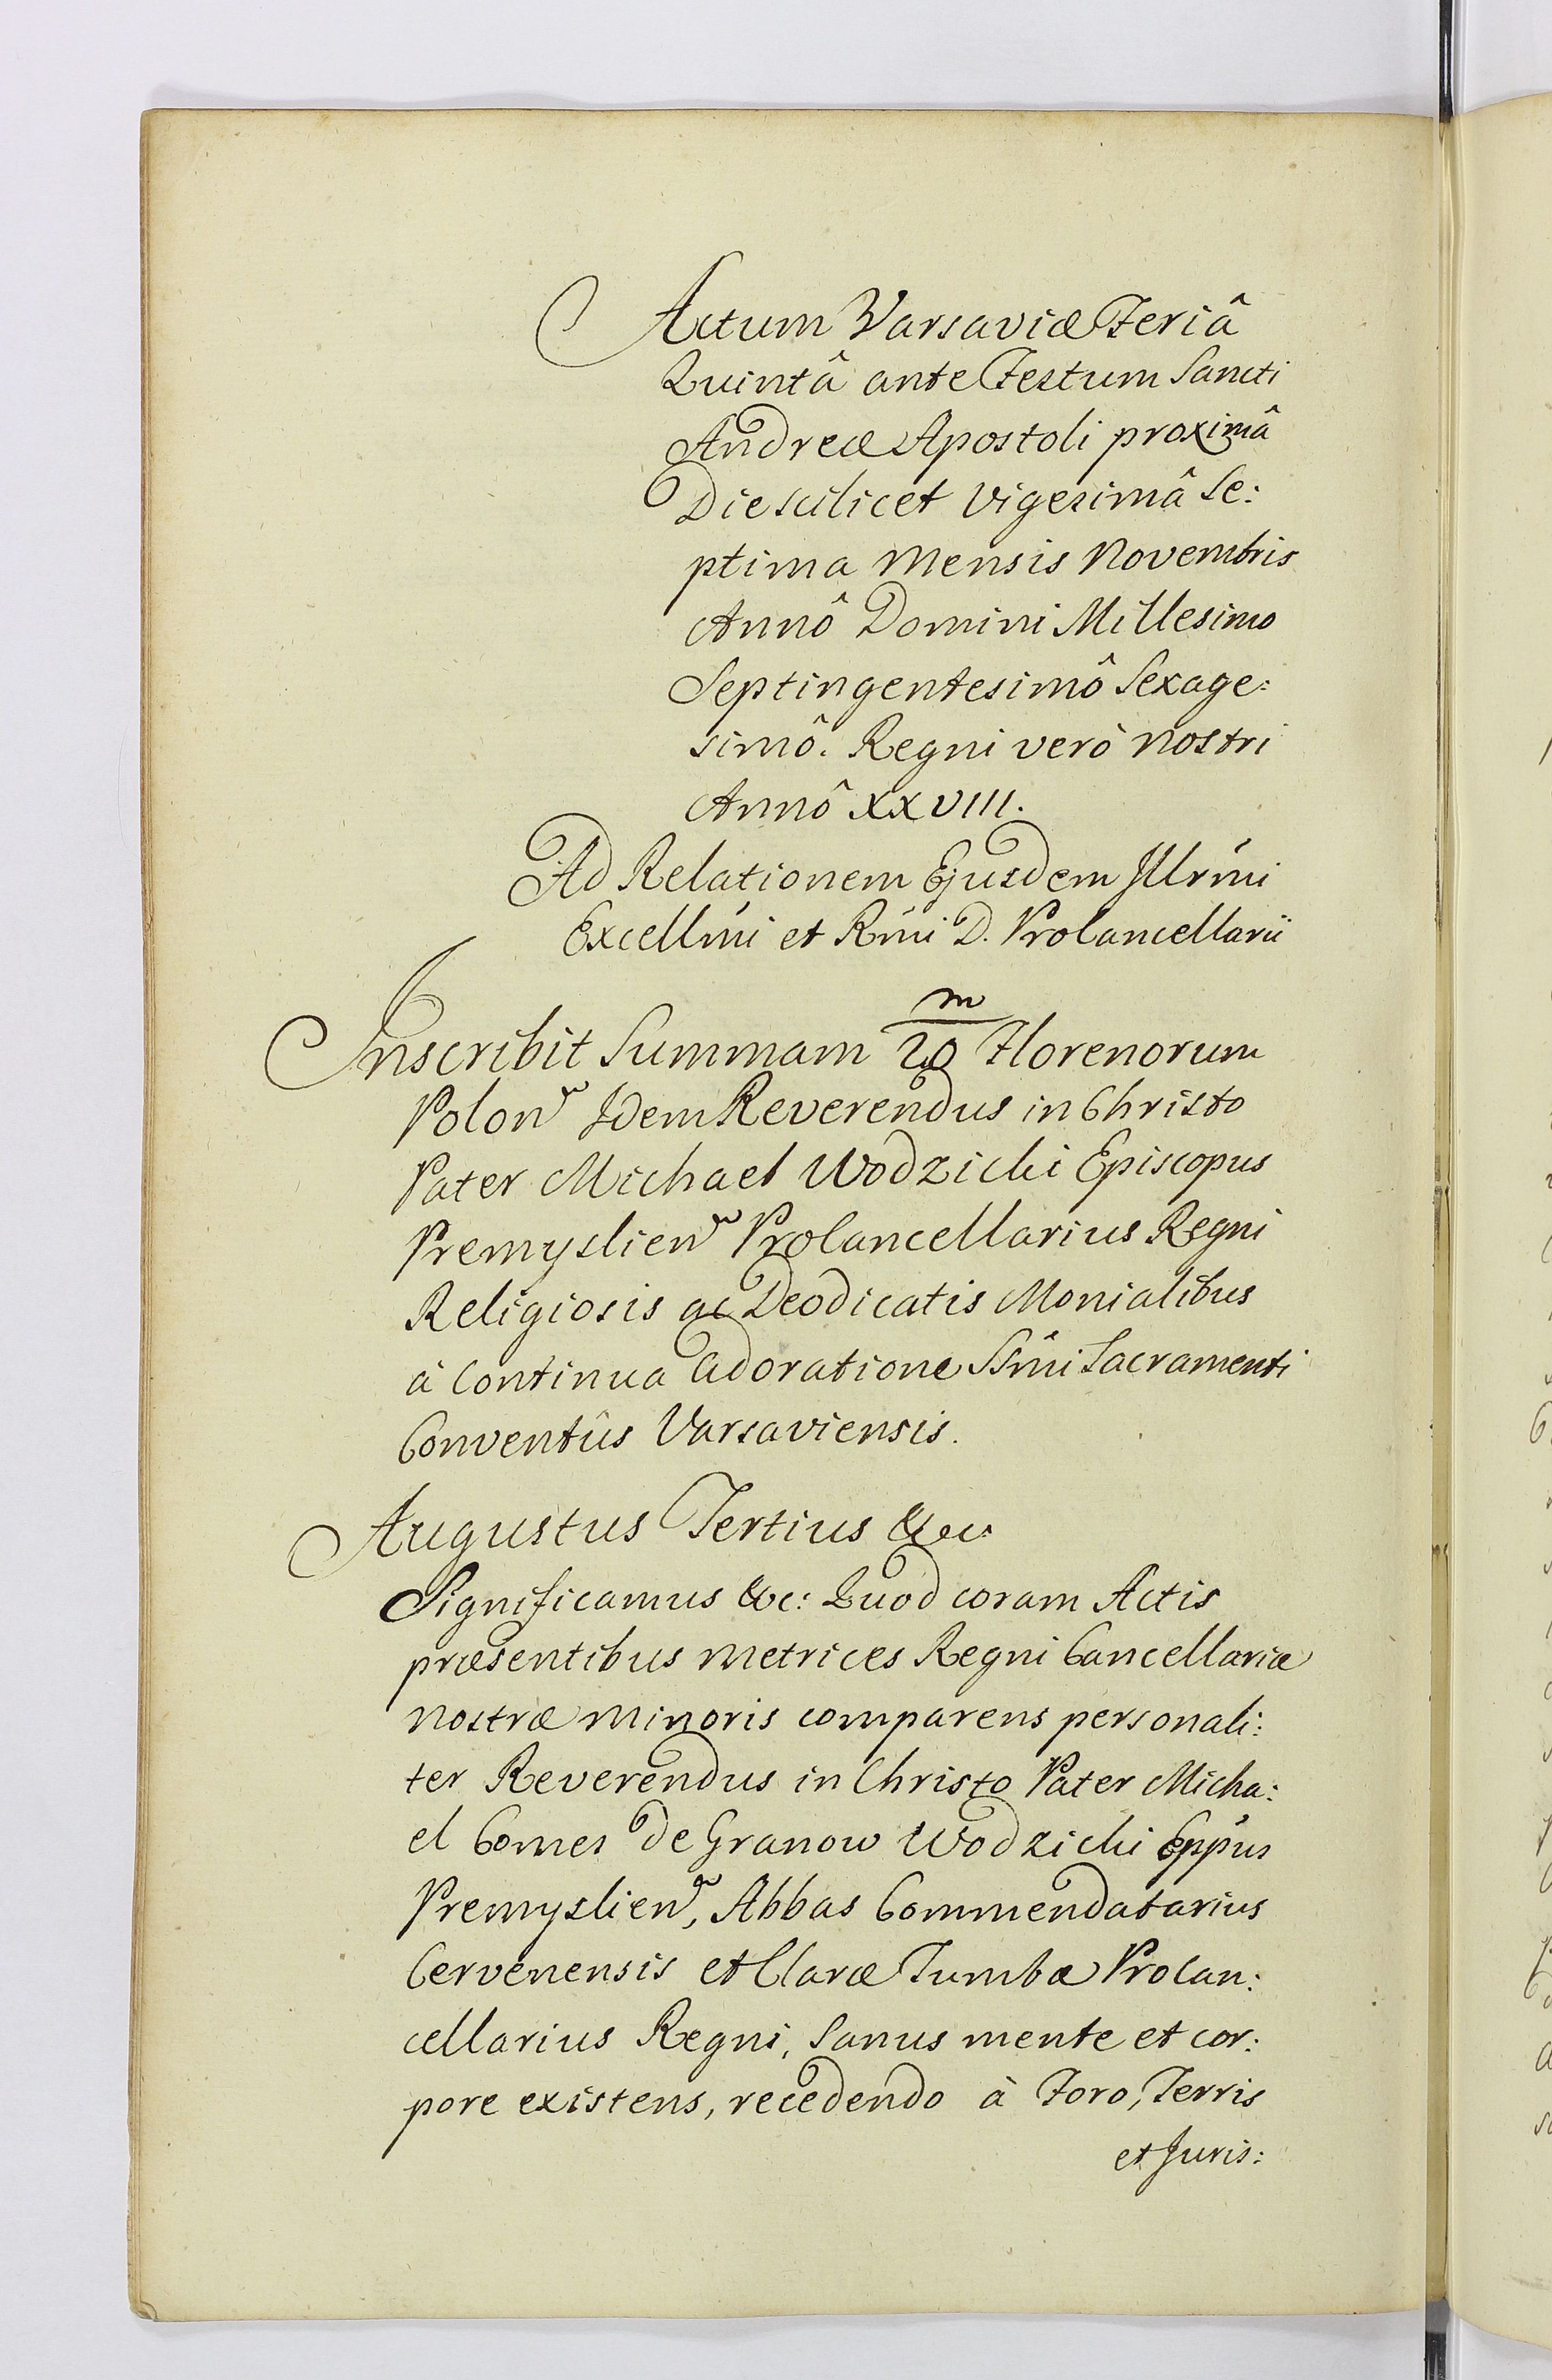 Actum Varsaviæ Feriâ
Quintâ ante Festum Sancti
Andreæ Apostoli proximâ
Die scilicet Vigesimâ Se:
ptima Mensis Novembris
Annô Domini Millesimo
Septingentesimô Sexage:
simô. Regni verò nostri
Annô XXVIII.
Ad Relationem Ejusdem Illrmi
Excellmi et Rmi D. Procancellarii
m
Inscribit Summam 20 Florenorum
Polon Idem Reverendus in Christo
Pater Michael Wodzicki Episcopus
Premyslien Procancellarius Regni
Religiosis ac Deodicatis Monialibus
à Continua adoratione Ssmi Sacramenti
Conventûs Varsaviensis.
Augustus Tertius &c:
Significamus &c: Quod coram Actis
præsentibus Metrices Regni Cancellariæ
Nostræ Minoris comparens personali:
ter Reverendus in Christo Pater Micha:
el Comes de Granow Wodzicki Eppus
Premyslien, Abbas Commendatarius
Cervenensis et Claræ Tumbæ Procan:
cellarius Regni, Sanus mente et cor:
pore existens, recedendo à Foro, Terris
et Juris: